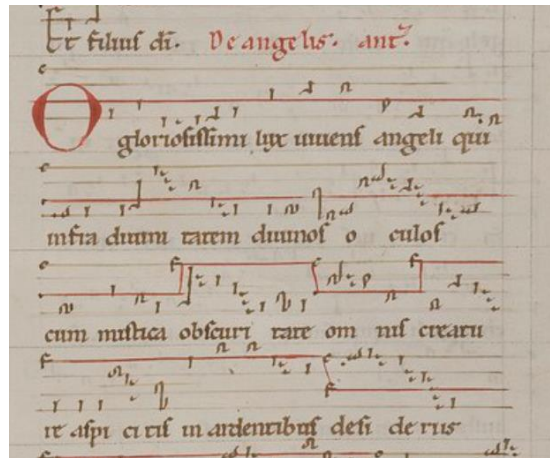 Et filius di. De angelis. ant.
O gloriosissimi lux uiuens angeli qui
infra diuini tatem diuinos o culos
cum mistica obscuri tate om nis creatu
re aspi ci tis in ardentibus desi de riis